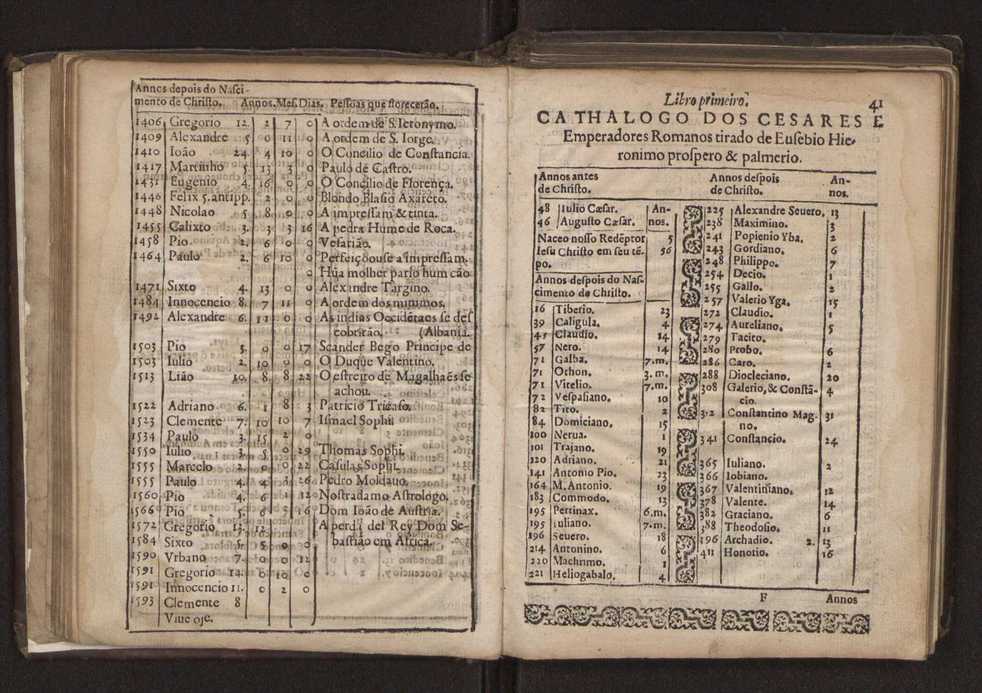 Annos depois do Nasci-
mento de Christo. Annos. Mes. Dias. Pessoas que florecerão.
1406 Gregorio 12. 2 7 0 A ordem de S. Ieronymo.
1409 Alexandre 5 0 11 0 A ordem de S. Iorge.
1410 Ioão 24. 4 10 0 O Concilio de Constancia.
1417 Martinho 5. 13 3 0 Paulo de Castro.
1431 Eugenio 4. 16 0 0 O Concilio de Florença.
1446 Felix 5. antipp. 2 0 0 Blondo Blasio Axareto.
1448 Nicolao 5 8 0 0 A impressam & tinta.
1455 Calixto 3. 3 3 16 A pedra Hume de Roca.
1458 Pio. 2. 6 0 0 Vesarião.
1464 Paulo 2. 6 10 0 Perfeiçoouse a impressam.
0 Hũa molher pario hum cão
1471 Sixto 4. 13 0 0 Alexandre Targino.
1484 Innocencio 8. 7 11 0 A ordem dos minimos.
1492 Alexandre 6. 11 0 0 As indias Occidẽtaes se des
cobrirão. (Albania.
1503 Pio 3. 0 0 17 Scander Bego Principe de
1503 Iulio 2. 10 0 0 O Duque Valentino.
1513 Lião 10. 8 8 22 O estreito de Magalhaẽs se
achou.
1522 Adriano 6. 1 8 3 Patricio Tricaso.
1523 Clemente 7. 10 10 7 Ismael Sophi.
1534 Paulo 3. 15 2 0
1550 Iulio 3. 5 0 29 Thomas Sophi.
1555 Marcelo 2. 0 0 22 Casulas Sophi.
1555 Paulo 4. 4 3 26 Pedro Moldauo.
1560 Pio 4. 6 1 12 Nostradamo Astrologo.
1566 Pio 5. 6 3 16 Dom Ioão de Austria.
1572 Gregorio 13. 12 A perda del Rey Dom Se-
1584 Sixto 5. 5 0 0 bastião em Africa.
1590 Vrbano 7. 0 0 12
1591 Gregorio 14. 0 10 0
1591 Innocencio 11. 0 2 0
1593 Clemente 8
Viue oje.
Libro primeiro. 41
CATHALOGO DOS CESARES E
Emperadores Romanos tirado de Eusebio Hie-
ronimo prospero & palmerio.
Annos antes
de Christo.
48 Iulio Cæsar. An-
46 Augusto Cæsar. nos.
Naceo nosso Redẽptor 5
Iesu Christo em seu tẽ- 56
po.
Annos despois do Nas-
cimento de Christo.
16 Tiberio. 23
39 Caligula. 4
41 Claudio. 14
57 Nero. 14
71 Galba. 7. m.
71 Othon. 3. m.
71 Vitelio. 7. m.
72 Vespasiano. 10
82 Tito. 2
84 Domiciano. 15
100 Nerua. 1
101 Trajano. 19
120 Adriano. 21
141 Antonio Pio. 23
164 M. Antonio. 19
183 Commodo. 13
195 Pertinax. 6. m.
195 Iuliano. 7. m.
196 Seuero. 18
214 Antonino. 6
220 Machrino. 1
221 Heliogabalo. 4
Annos despois An-
de Christo. nos.
225 Alexandre Seuero. 13
238 Maximino. 3
241 Popienio Yba. 2
243 Gordiano. 6
248 Philippo. 7
254 Decio. 1
255 Gallo. 2
257 Valerio Yga. 15
272 Claudio. 1
274 Aureliano. 5
279 Tacito.
280 Probo. 6
286 Caro. 2
288 Diocleciano. 20
308 Galerio, & Constã- 4
cio.
312 Constantino Mag- 31
no.
341 Constancio. 24
365 Iuliano. 2
366 Iobiano.
367 Valentiniano. 12
378 Valente. 14
382 Graciano. 6
388 Theodosio. 11
396 Archadio. 2. 13
411 Honorio. 16
F Annos